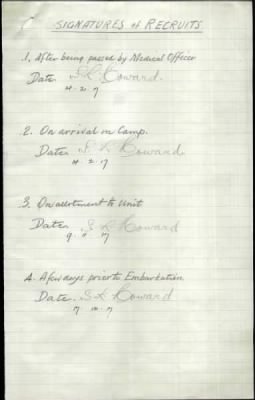 SIGNATURES of RECRUITS.
1. After being passed by Medical Officer
Date S. L. Coward.
4. 2. 7
2. On arrival in Camp.
Date S. L. Coward.
4 2. 17
3. On allotment to Unit
Date S L Coward
9. 7
4. A few days prior to Embarkation
Date. S L Coward
7. 10. 7